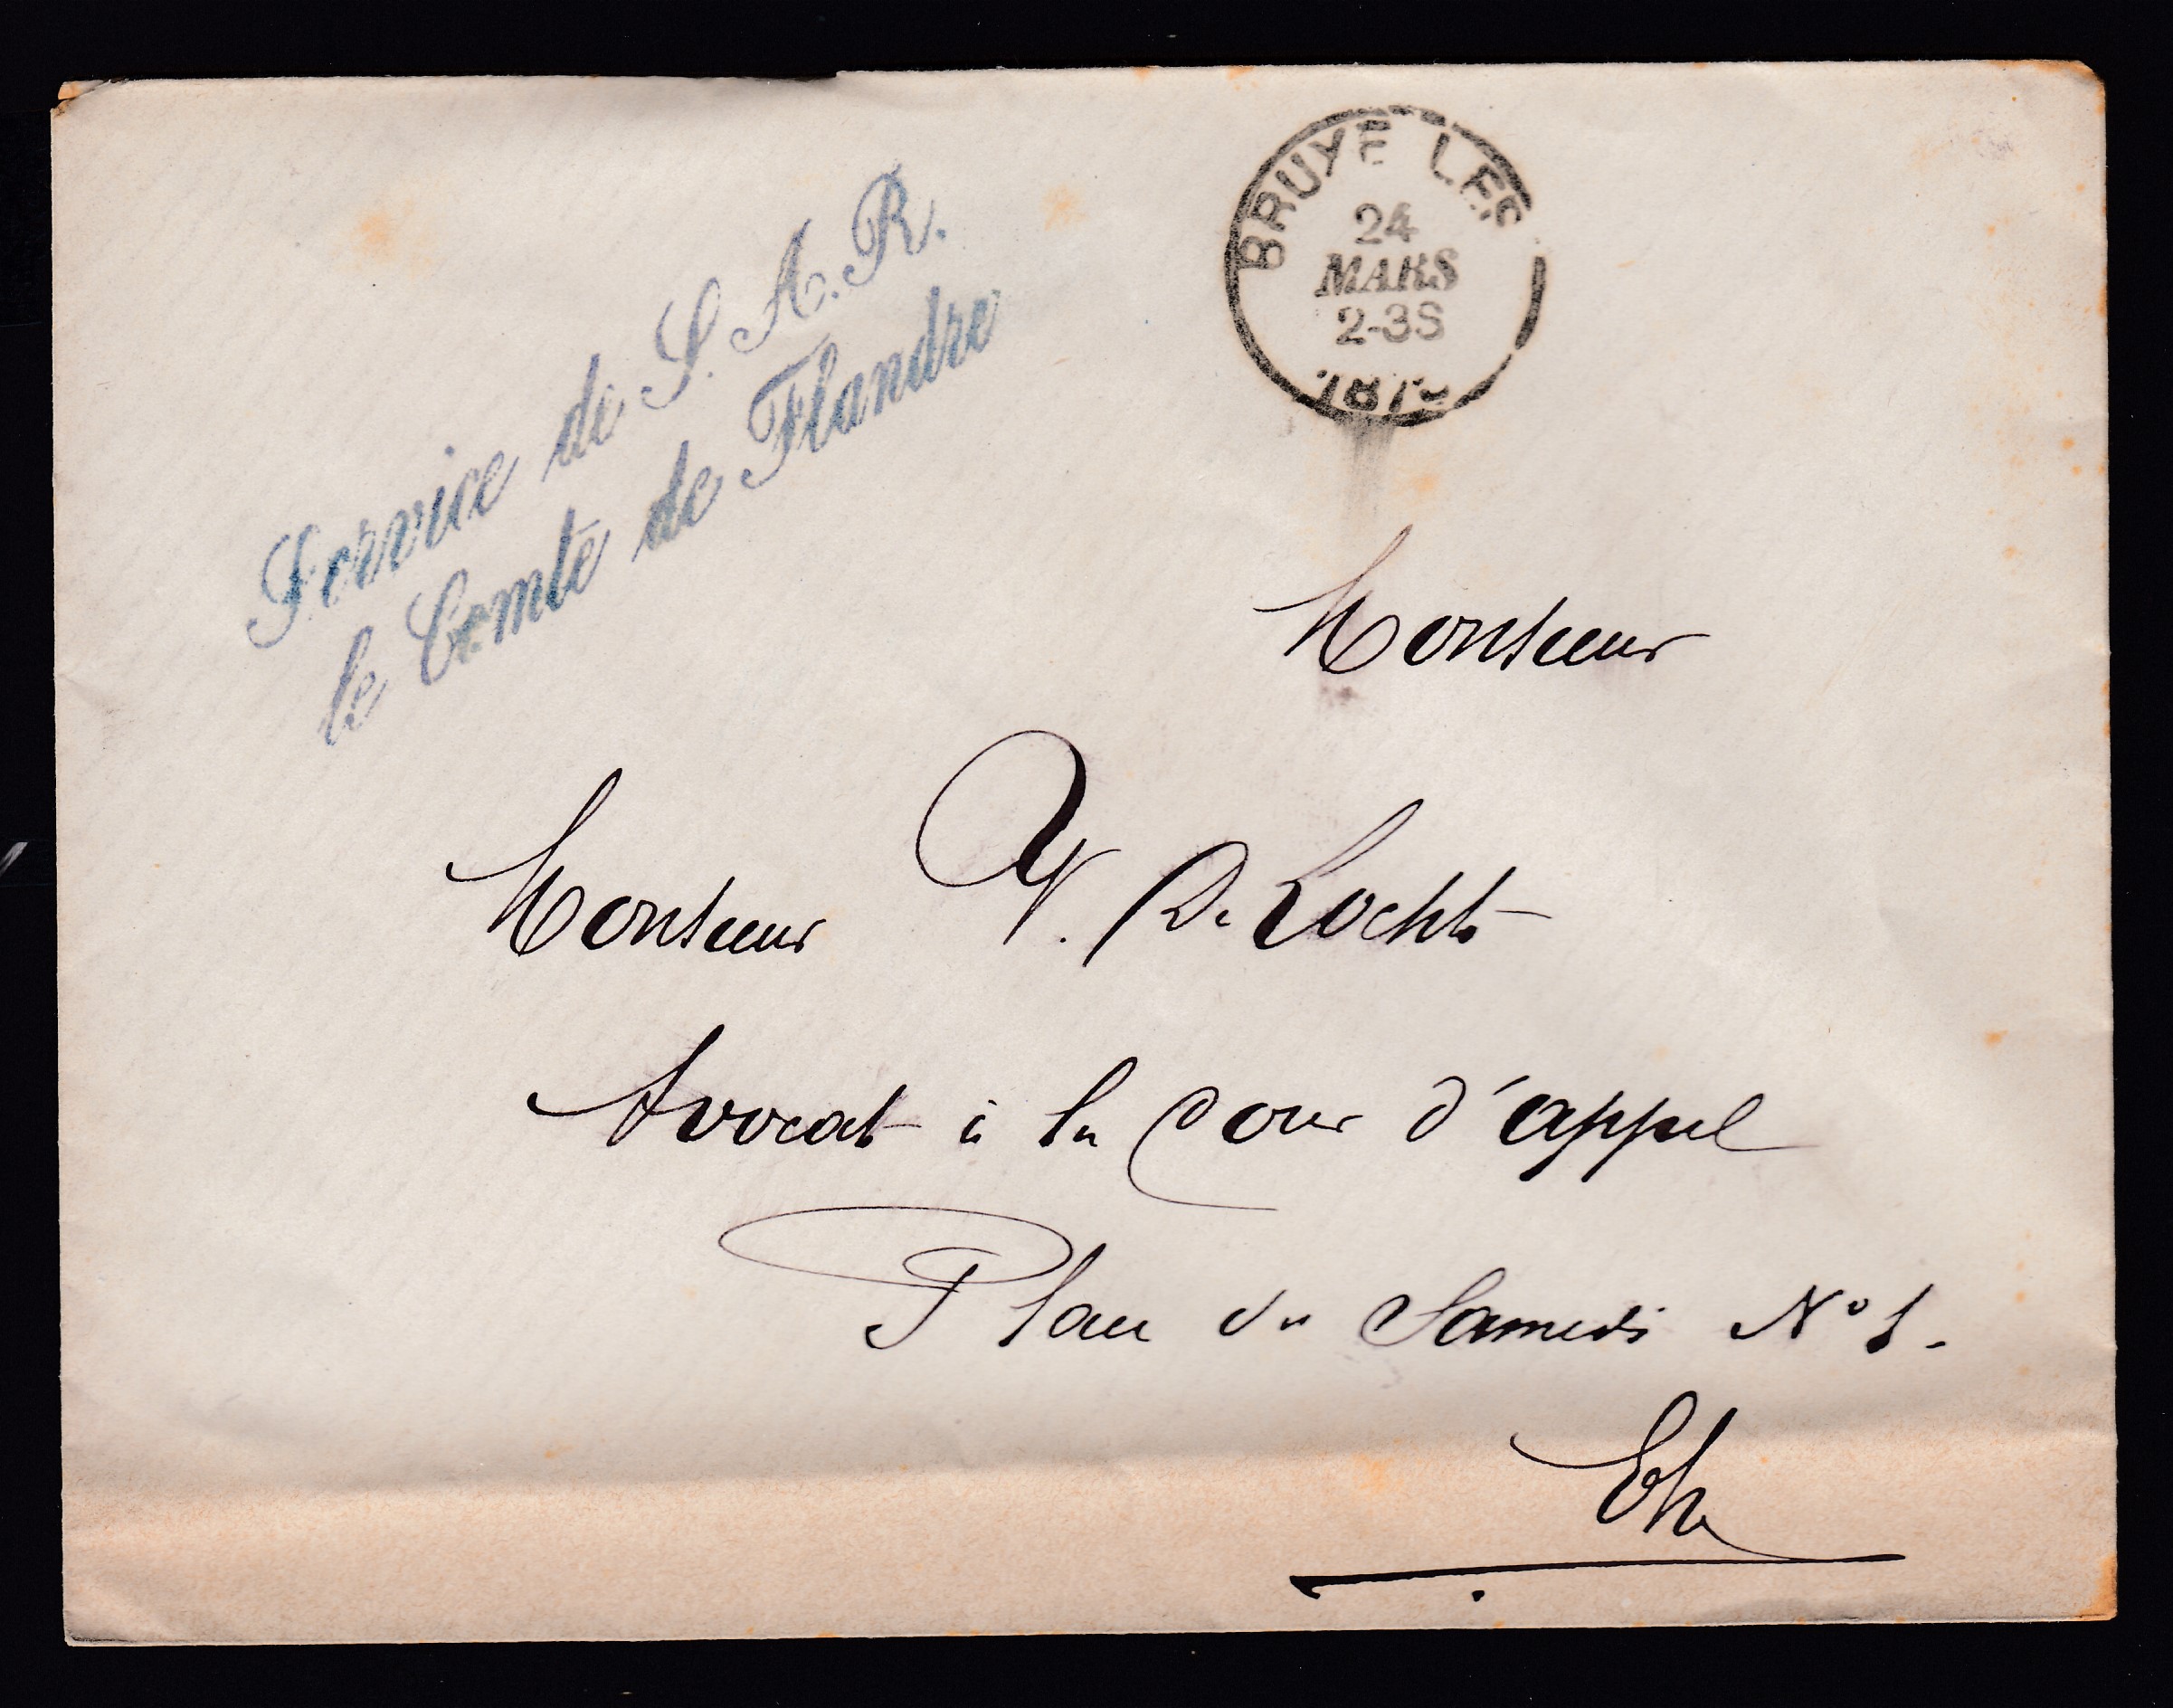 Service de S. A. R.
le Comte de Flandre
BRUXELLES
24
MARS
2-3S
Monsieur
Monsieur A. De Locht
Avocat à la Cour d'appel
Place du Samedi N° 1.